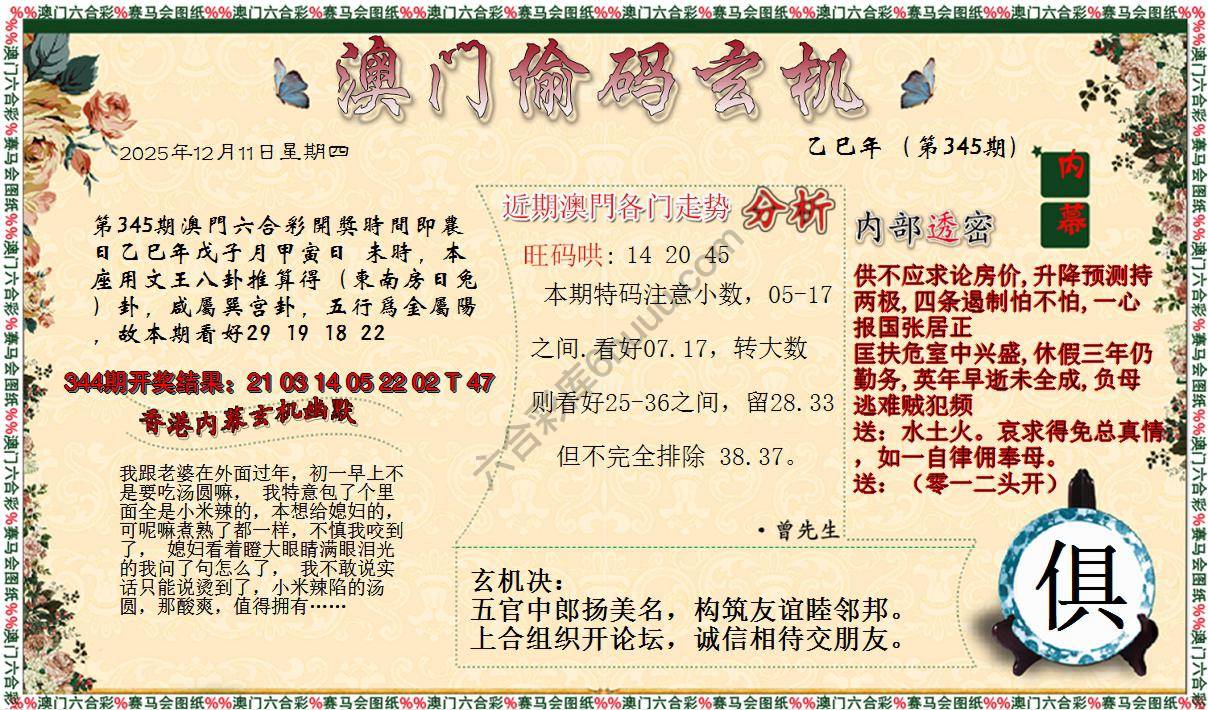 %%澳门六合彩%赛马会图纸%%澳门六合彩%赛马会图纸%%澳门六合彩%赛马会图纸%%澳门六合彩%赛马会图纸%%澳门六合彩%赛马会图纸%%澳门六合彩%赛马会图纸%%
澳门偷码玄机
2025年12月11日星期四
乙巳年（第345期）
内幕
第345期澳門六合彩開獎時間即農
日乙巳年戊子月甲寅日 未時，本
座用文王八卦推算得（東南房日兔
）卦，咸屬巽宫卦，五行爲金屬陽
，故本期看好29 19 18 22
344期开奖结果：21 03 14 05 22 02 T 47
香港内幕玄机幽默
我跟老婆在外面过年，初一早上不
是要吃汤圆嘛， 我特意包了个里
面全是小米辣的，本想给媳妇的，
可呢嘛煮熟了都一样，不慎我咬到
了， 媳妇看着瞪大眼睛满眼泪光
的我问了句怎么了， 我不敢说实
话只能说烫到了，小米辣陷的汤
圆，那酸爽，值得拥有……
近期澳門各门走势 分析
旺码哄: 14 20 45
本期特码注意小数，05-17
之间.看好07.17，转大数
则看好25-36之间，留28.33
但不完全排除 38.37。
·曾先生
内部透密
供不应求论房价,升降预测持
两极,四条遏制怕不怕,一心
报国张居正
匡扶危室中兴盛,休假三年仍
勤务,英年早逝未全成,负母
逃难贼犯频
送：水土火。哀求得免总真情
，如一自律佣奉母。
送：（零一二头开）
玄机决：
五官中郎扬美名，构筑友谊睦邻邦。
上合组织开论坛，诚信相待交朋友。
俱
六合彩库